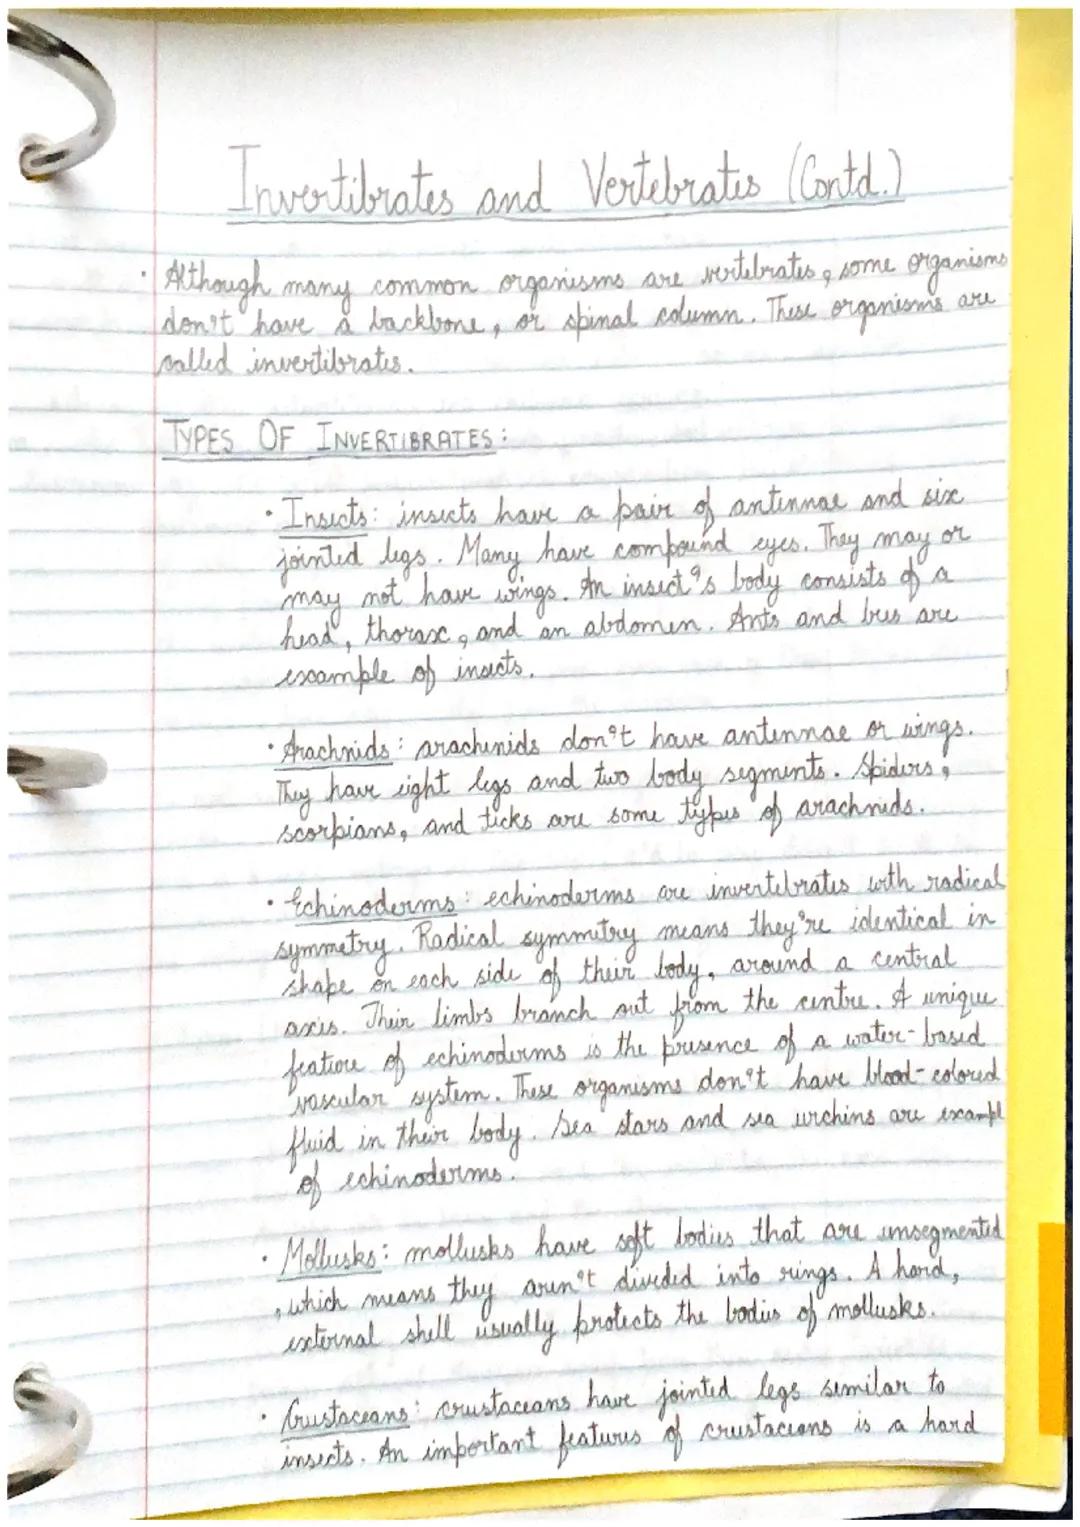 Invertibrates and Vertebrates (Contd.)
· Although many common organisms are vertebrates, some organisms
don't have a backbone, or spinal column. These organisms are
called invertibrates.
TYPES OF INVERTIBRATES:
· Insects: insects have a pair of antinnae and six
jointed legs. Many have compound eyes. They may or
may not have wings. An insect's body consists of a
head, thorax, and an abdomen. Ants and bees are
example of insects.
· Arachnids: arachinids don't have antennae or wings.
They have eight legs and two body segments. Spiders,
scorpians, and ticks are some types of arachnids.
· Echinoderms: echinoderms are invertebrates with radical
symmetry. Radical symmetry means they're identical in
shape on each side of their body, around a central
axis. Their limbs branch out from the centre. A unique
feature of echinoderms is the presence of a water-based
vascular system. These organisms don't have blood-colored
fluid in their body. Sea stars and sea urchins are exampl
of echinoderms.
· Mollusks: mollusks have soft bodies that are unsegmented
, which means they aren't divided into rings. A hard,
external shell usually protects the bodies of mollusks.
· Crustaceans: crustaceans have jointed legs similar to
insects. An important features of crustaceans is a hard